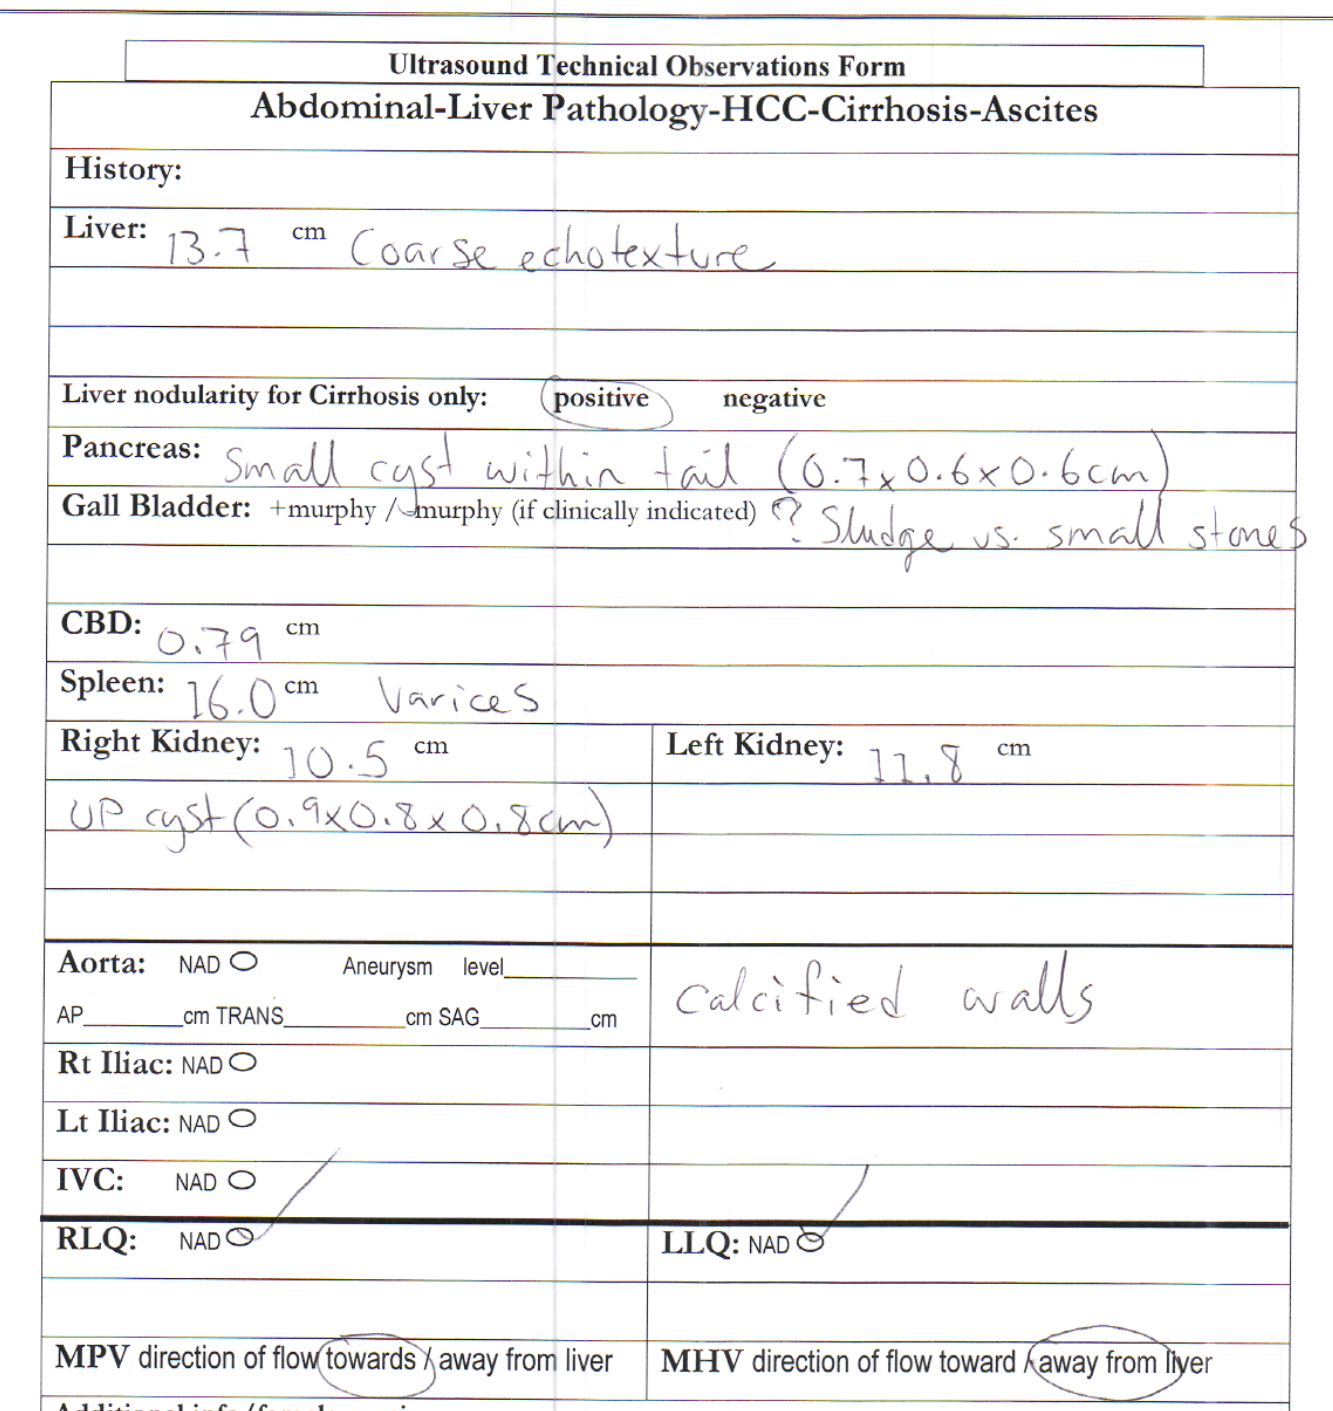 Ultrasound Technical Observations Form
Abdominal-Liver Pathology-HCC-Cirrhosis-Ascites
History:
Liver: 13.7 cm Coarse echotexture
Liver nodularity for Cirrhosis only: positive negative
Pancreas: Small cyst within tail (0.7x0.6x0.6cm)
Gall Bladder: +murphy / -murphy (if clinically indicated) ? Sludge vs. small stones
CBD: 0.79 cm
Spleen: 16.0 cm Varices
Right Kidney: 10.5 cm Left Kidney: 11.8 cm
UP cyst (0.9x0.8x0.8cm)
Aorta: NAD Aneurysm level
calcified walls
AP cm TRANS cm SAG cm
Rt Iliac: NAD
Lt Iliac: NAD
IVC: NAD
RLQ: NAD LLQ: NAD
MPV direction of flow towards / away from liver MHV direction of flow toward / away from liver